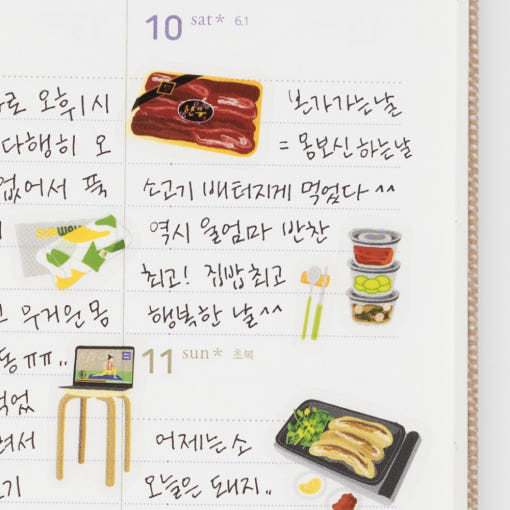 로 오후 1시
다행히 오
없어서 푹
SUBWAY
무거운 몸
동 ㅠㅠ..
먹었
려서
기
10 sat* 6.1
한우
본가 가는 날
= 몸보신 하는 날
소고기 배터지게 먹었다 ^^
역시 울엄마 반찬
최고! 집밥 최고
행복한 날 ^^
11 sun* 초복
어제는 소
오늘은 돼지..